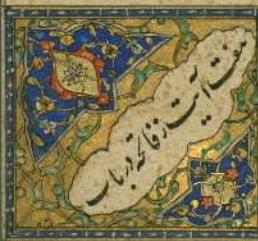 هفت آیت ز فاتحه دریاب